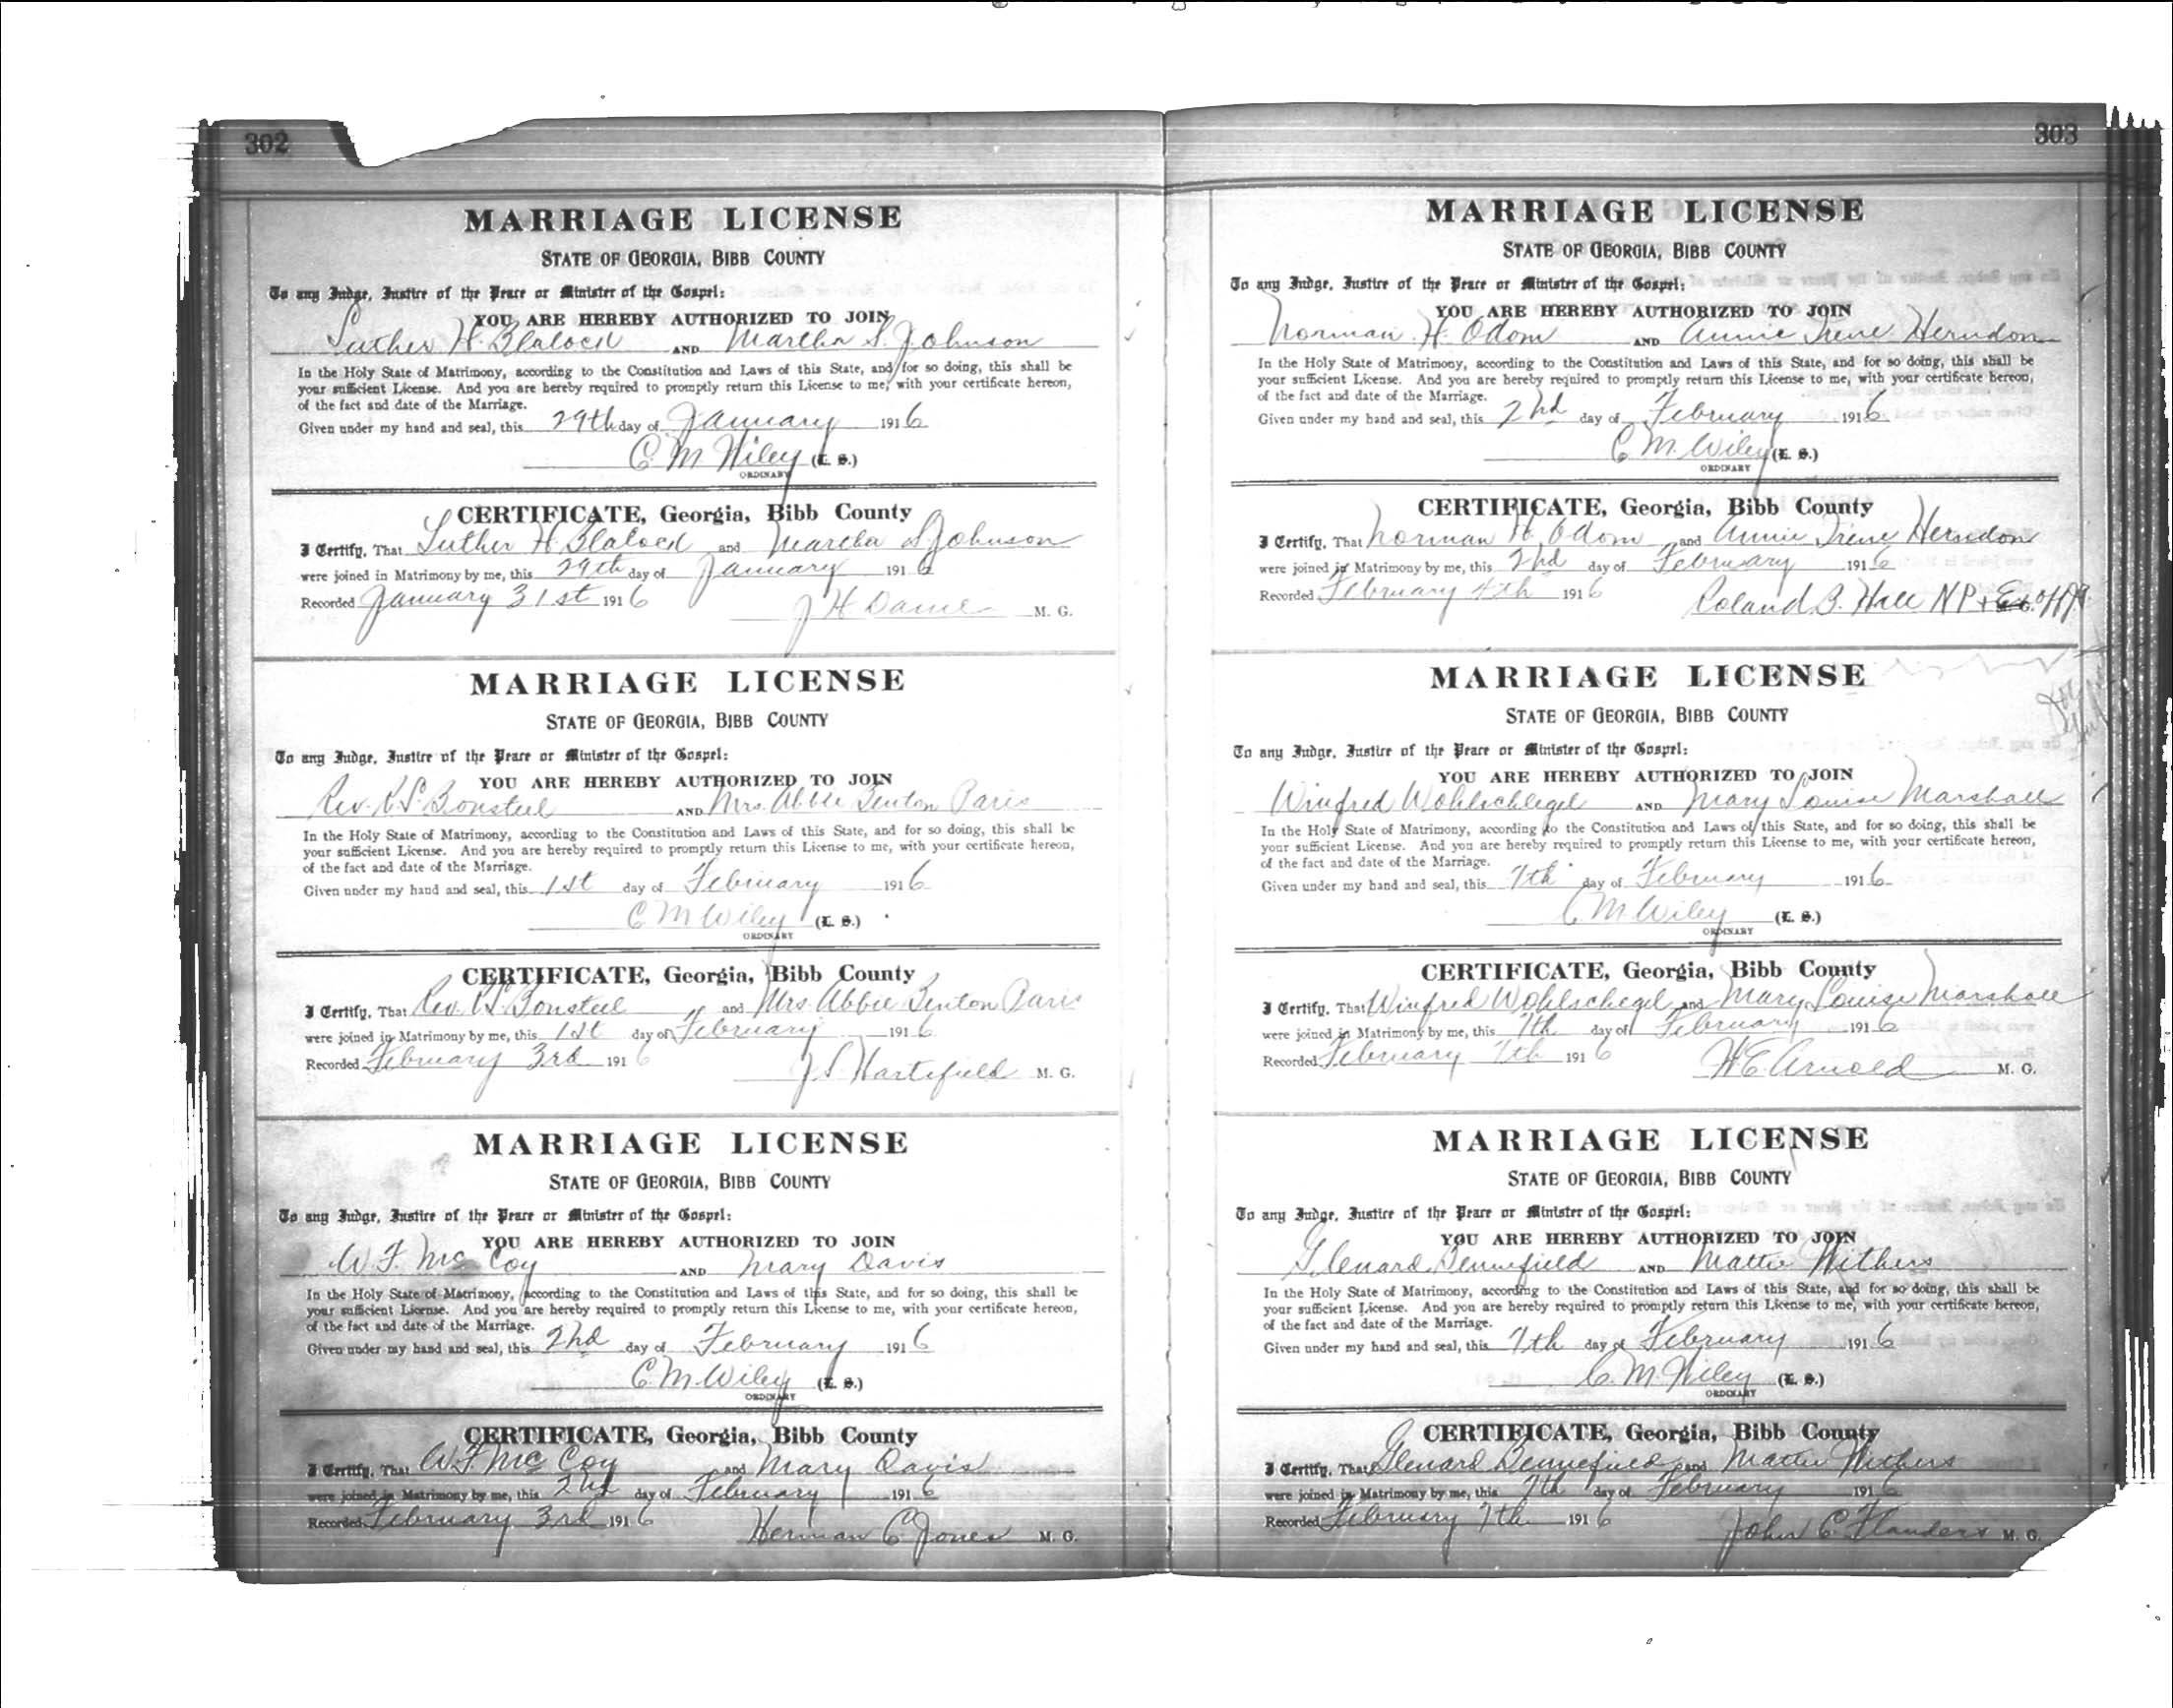 302
MARRIAGE LICENSE
STATE OF GEORGIA, BIBB COUNTY
To any Judge, Justice of the Peace or Minister of the Gospel:
YOU ARE HEREBY AUTHORIZED TO JOIN
Luther H. Blalock AND Martha S. Johnson
In the Holy State of Matrimony, according to the Constitution and Laws of this State, and for so doing, this shall be
your sufficient License. And you are hereby required to promptly return this License to me, with your certificate hereon,
of the fact and date of the Marriage.
Given under my hand and seal, this 29th day of January 1916
C. M. Wiley (L. S.)
ORDINARY
CERTIFICATE, Georgia, Bibb County
I Certify, That Luther H. Blalock and Martha S. Johnson
were joined in Matrimony by me, this 29th day of January 1916
Recorded January 31st 1916 J H M. G.
MARRIAGE LICENSE
STATE OF GEORGIA, BIBB COUNTY
To any Judge, Justice of the Peace or Minister of the Gospel:
YOU ARE HEREBY AUTHORIZED TO JOIN
Rev. R. S. Bonsteel AND Mrs. Abbie Benton Paris
In the Holy State of Matrimony, according to the Constitution and Laws of this State, and for so doing, this shall be
your sufficient License. And you are hereby required to promptly return this License to me, with your certificate hereon,
of the fact and date of the Marriage.
Given under my hand and seal, this 1st day of February 1916
C M Wiley (L. S.)
ORDINARY
CERTIFICATE, Georgia, Bibb County
I Certify, That Rev. R S Bonsteel and Mrs Abbie Benton Paris
were joined in Matrimony by me, this 1st day of February 1916
Recorded February 3rd 1916 J. S. Hartsfield M. G.
MARRIAGE LICENSE
STATE OF GEORGIA, BIBB COUNTY
To any Judge, Justice of the Peace or Minister of the Gospel:
YOU ARE HEREBY AUTHORIZED TO JOIN
W. F. McCoy AND Mary Davis
In the Holy State of Matrimony, according to the Constitution and Laws of this State, and for so doing, this shall be
your sufficient License. And you are hereby required to promptly return this License to me, with your certificate hereon,
of the fact and date of the Marriage.
Given under my hand and seal, this 2nd day of February 1916
C. M. Wiley (L. S.)
ORDINARY
CERTIFICATE, Georgia, Bibb County
I Certify, That W. F. McCoy and Mary Davis
were joined in Matrimony by me, this 2nd day of February 1916
Recorded February 3rd 1916 Herman C. Jones M. G.
303
MARRIAGE LICENSE
STATE OF GEORGIA, BIBB COUNTY
To any Judge, Justice of the Peace or Minister of the Gospel:
YOU ARE HEREBY AUTHORIZED TO JOIN
Norman H. Odom AND Annie Irene Herndon
In the Holy State of Matrimony, according to the Constitution and Laws of this State, and for so doing, this shall be
your sufficient License. And you are hereby required to promptly return this License to me, with your certificate hereon,
of the fact and date of the Marriage.
Given under my hand and seal, this 2nd day of February 1916
C. M. Wiley (L. S.)
ORDINARY
CERTIFICATE, Georgia, Bibb County
I Certify, That Norman H. Odom and Annie Irene Herndon
were joined in Matrimony by me, this 2nd day of February 1916
Recorded February 4th 1916 Roland B. Hall N P
MARRIAGE LICENSE
STATE OF GEORGIA, BIBB COUNTY
To any Judge, Justice of the Peace or Minister of the Gospel:
YOU ARE HEREBY AUTHORIZED TO JOIN
Winfred Wohlschlegel AND Mary Louise Marshall
In the Holy State of Matrimony, according to the Constitution and Laws of this State, and for so doing, this shall be
your sufficient License. And you are hereby required to promptly return this License to me, with your certificate hereon,
of the fact and date of the Marriage.
Given under my hand and seal, this 7th day of February 1916
C. M. Wiley (L. S.)
ORDINARY
CERTIFICATE, Georgia, Bibb County
I Certify, That Winfred Wohlschegel and Mary Louise Marshall
were joined in Matrimony by me, this 7th day of February 1916
Recorded February 7th 1916 H. E. Arnold M. G.
MARRIAGE LICENSE
STATE OF GEORGIA, BIBB COUNTY
To any Judge, Justice of the Peace or Minister of the Gospel:
YOU ARE HEREBY AUTHORIZED TO JOIN
Glenard Bennefield AND Mattie Withers
In the Holy State of Matrimony, according to the Constitution and Laws of this State, and for so doing, this shall be
your sufficient License. And you are hereby required to promptly return this License to me, with your certificate hereon,
of the fact and date of the Marriage.
Given under my hand and seal, this 7th day of February 1916
C. M. Wiley (L. S.)
ORDINARY
CERTIFICATE, Georgia, Bibb County
I Certify, That Glenard Bennefield and Mattie Withers
were joined in Matrimony by me, this 7th day of February 1916
Recorded February 7th 1916 John C. Flanders M. G.